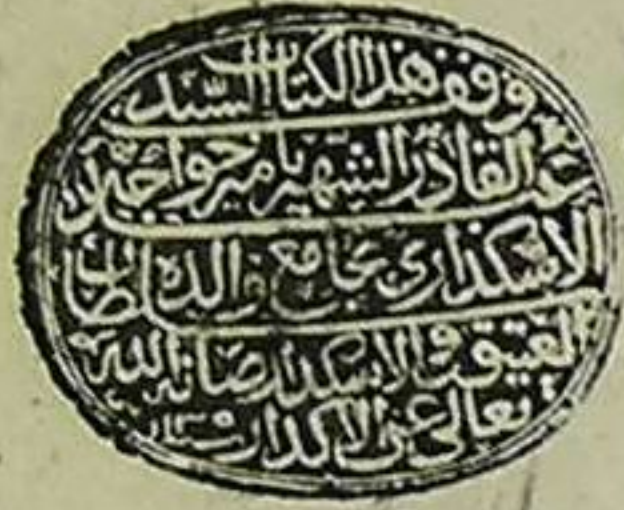 وقف هذا الكتاب السيد
عبد القادر الشهير بامير خواجه
الاسكدارى بجامع والده سلطان
العتيقة والاسكدار صانه الله
تعالى عن الاكدار